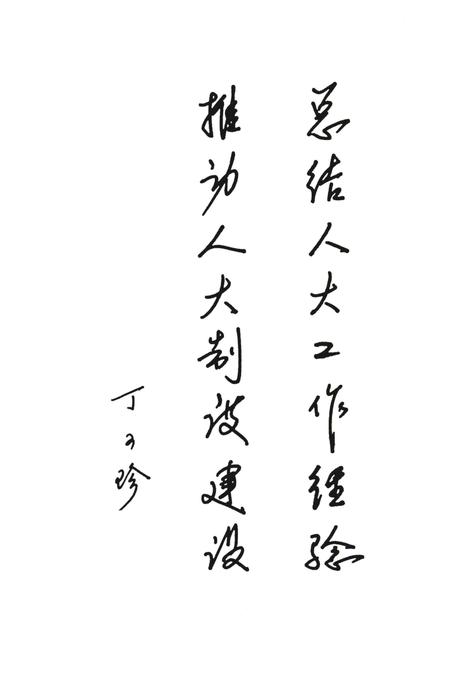 总结人大工作经验
推动人大制度建设
丁 珍